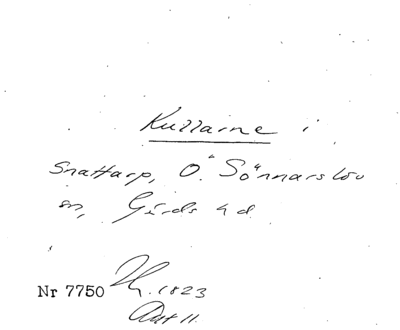 Kullarne i
Snattarp, Ö. Sönnarslöv
sn, Gärds hd.
Nr 7750
1823
Akt 11.